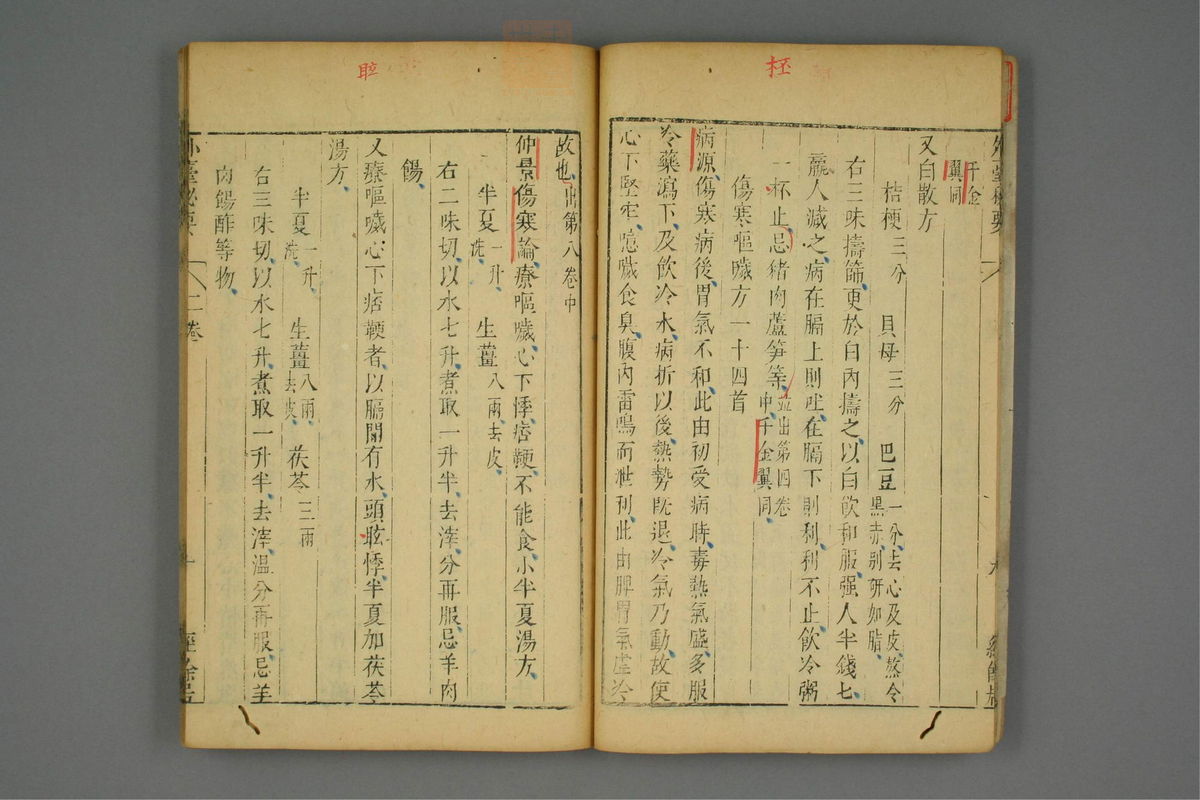 千金
翼同
又白散方
桔梗三分 貝母三分 巴豆一分去心及皮熬令黑赤别研如脂
右三味擣篩更於臼內擣之以白飲和服强人半錢匕
羸人減之病在膈上則吐在膈下則利利不止飲冷粥
一杯止忌豬肉蘆笋等並出第四卷中千金翼同
傷寒嘔噦方一十四首
病源傷寒病後胃氣不和此由初受病時毒熱氣盛多服
冷藥瀉下及飲冷水病折以後熱勢既退冷氣乃動故使
心下堅牢噫噦食臭腹內雷鳴而泄利此由脾胃氣虛冷
故也出第八卷中
仲景傷寒論療嘔噦心下悸痞鞕不能食小半夏湯方
半夏一升洗 生薑八兩去皮
右二味切以水七升煮取一升半去滓分再服忌羊肉
餳
又療嘔噦心下痞鞕者以膈間有水頭眩悸半夏加茯苓
湯方
半夏一升洗 生薑八兩去皮 茯苓三兩
右三味切以水七升煮取一升半去滓溫分再服忌羊
肉餳酢等物
外臺秘要 二卷